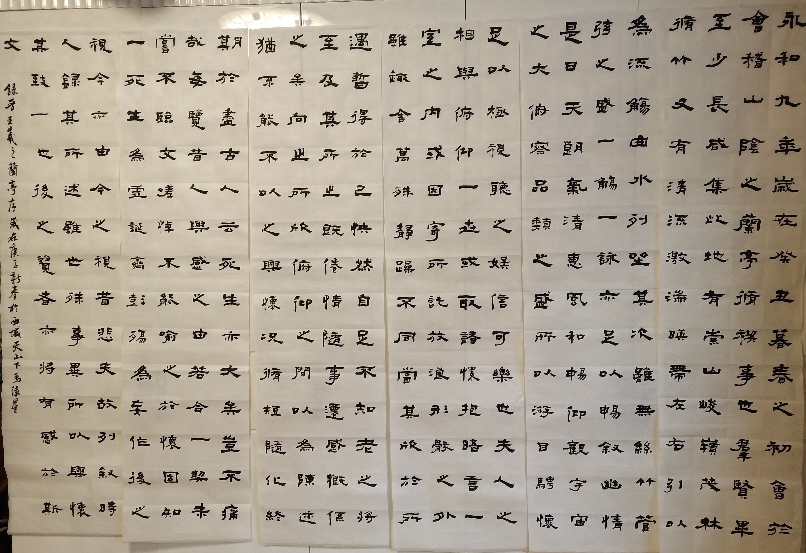 永和九年歲在癸丑暮春之初會於
會稽山陰之蘭亭脩禊事也羣賢畢
至少長咸集此地有崇山峻嶺茂林
脩竹又有清流激湍暎帶左右引以
為流觴曲水列坐其次雖無絲竹管
弦之盛一觴一詠亦足以暢敘幽情
是日天朗氣清惠風和暢仰觀宇宙
之大俯察品類之盛所以游目騁懷
足以極視聽之娛信可樂也夫人之
相與俯仰一世或取諸懷抱晤言一
室之內或因寄所託放浪形骸之外
雖趣舍萬殊靜躁不同當其欣於所
遇暫得於己快然自足不知老之將
至及其所之既倦情隨事遷感慨係
之矣向之所欣俯仰之間以為陳迹
猶不能不以之興懷況脩短隨化終
期於盡古人云死生亦大矣豈不痛
哉每覽昔人興感之由若合一契未
嘗不臨文嗟悼不能喻之於懷固知
一死生為虛誕齊彭殤為妄作後之
視今亦由今之視昔悲夫故列敘時
人錄其所述雖世殊事異所以興懷
其致一也後之覽者亦將有感於斯
文
錄晉王羲之蘭亭序歲在庚子新春於西域天山下馬